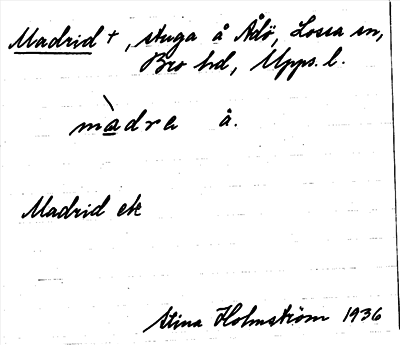 Madrid †, stuga å Ådö, Lossa sn,
Bro hd, Upps. l.
màdre å.
Madrid ek
Stina Holmström 1936